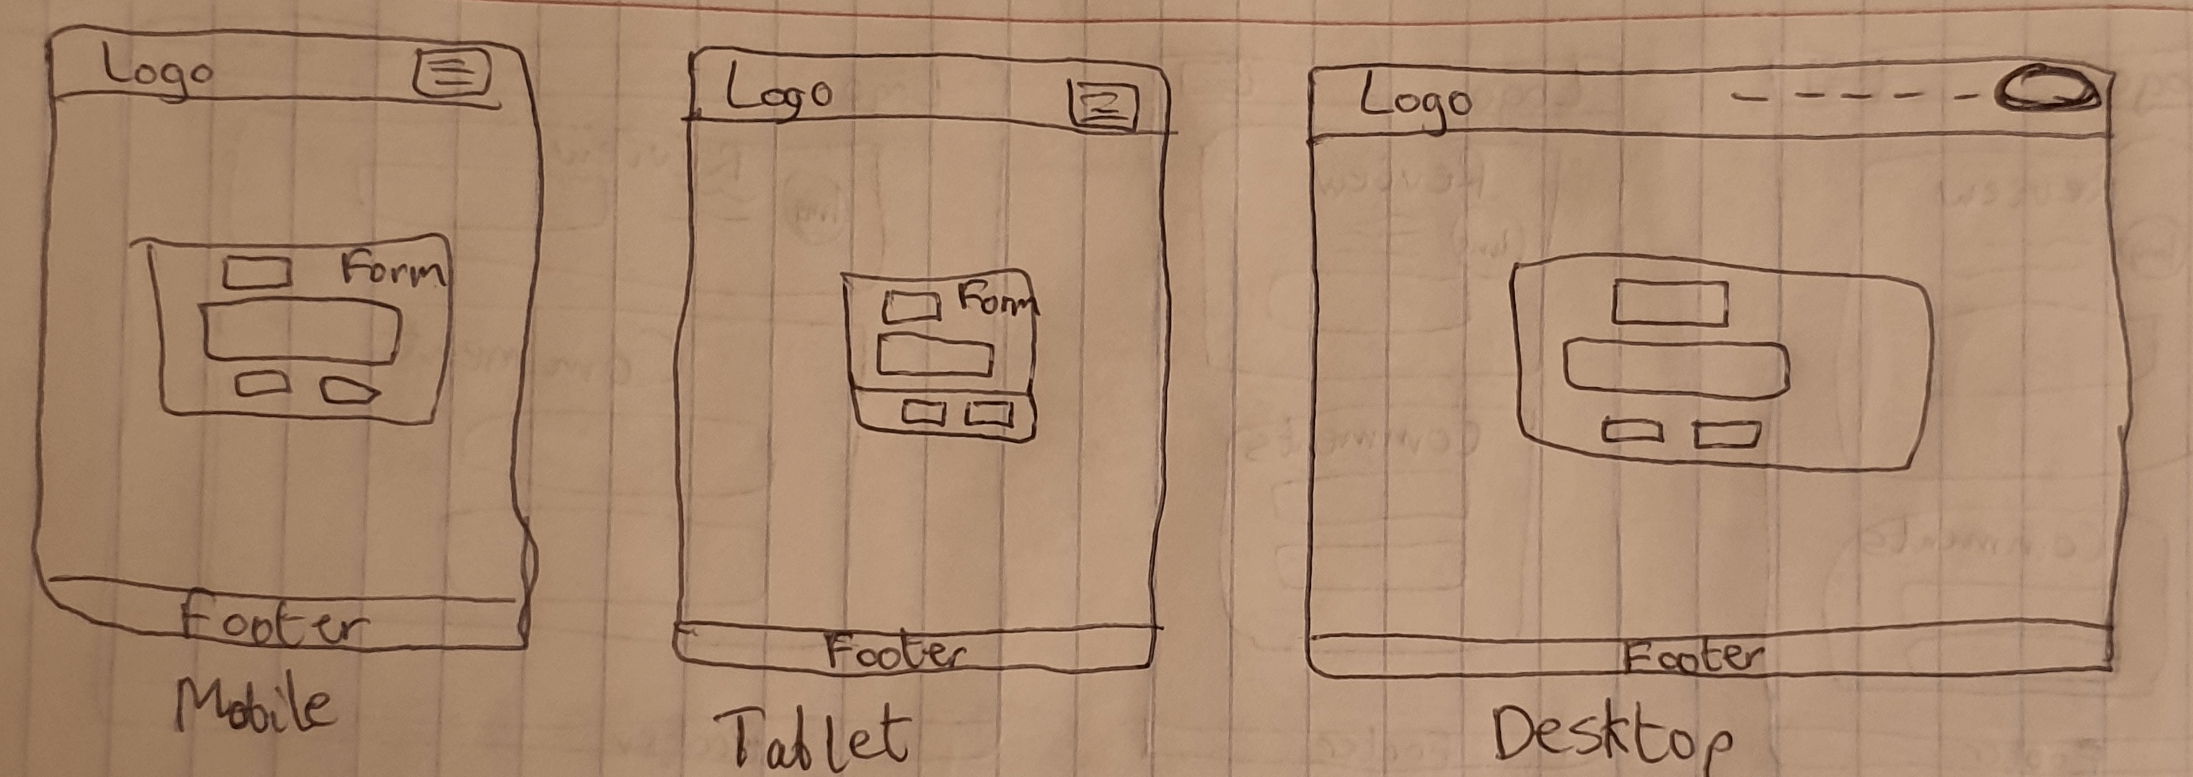 Logo
Form
Footer
Mobile
Logo
Form
Footer
Tablet
Logo
Footer
Desktop